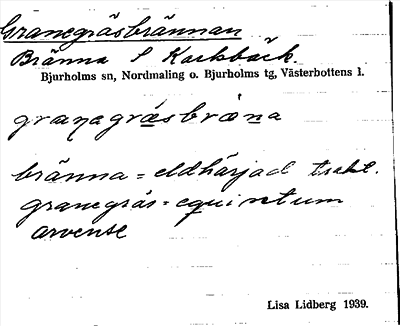 Granegräsbrännan
Bränna S Karlsbäck.
Bjurholms sn, Nordmaling o. Bjurholms tg, Västerbottens l.
granagräsbräna
bränna = eldhärjad trakt.
granegräs = equisetum
arvense
Lisa Lidberg 1939.